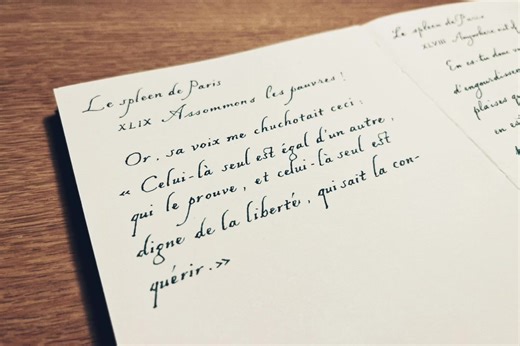 Le spleen de Paris
XLIX Assommons les pauvres !
Or, sa voix me chuchotait ceci :
« Celui-là seul est égal d'un autre,
qui le prouve, et celui-là seul est
digne de la liberté, qui sait la con-
quérir. »
Le spleen de Paris
XLVIII Anywhere out of
En es-tu donc v
d'engourdissem
plaises qu
en